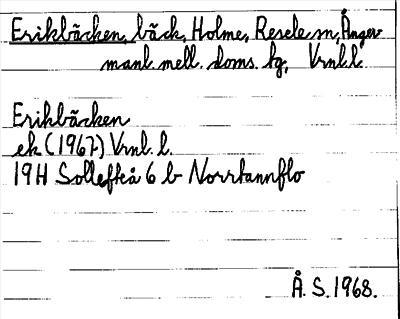 Erikbäcken, bäck, Holme, Resele sn, Ånger
manl. mell. doms. bg, Vrnl. l.
Erikbäcken
ek (1967) Vrnl. l.
19H Sollefteå 6 b Norrtannflo
Å. S. 1968.